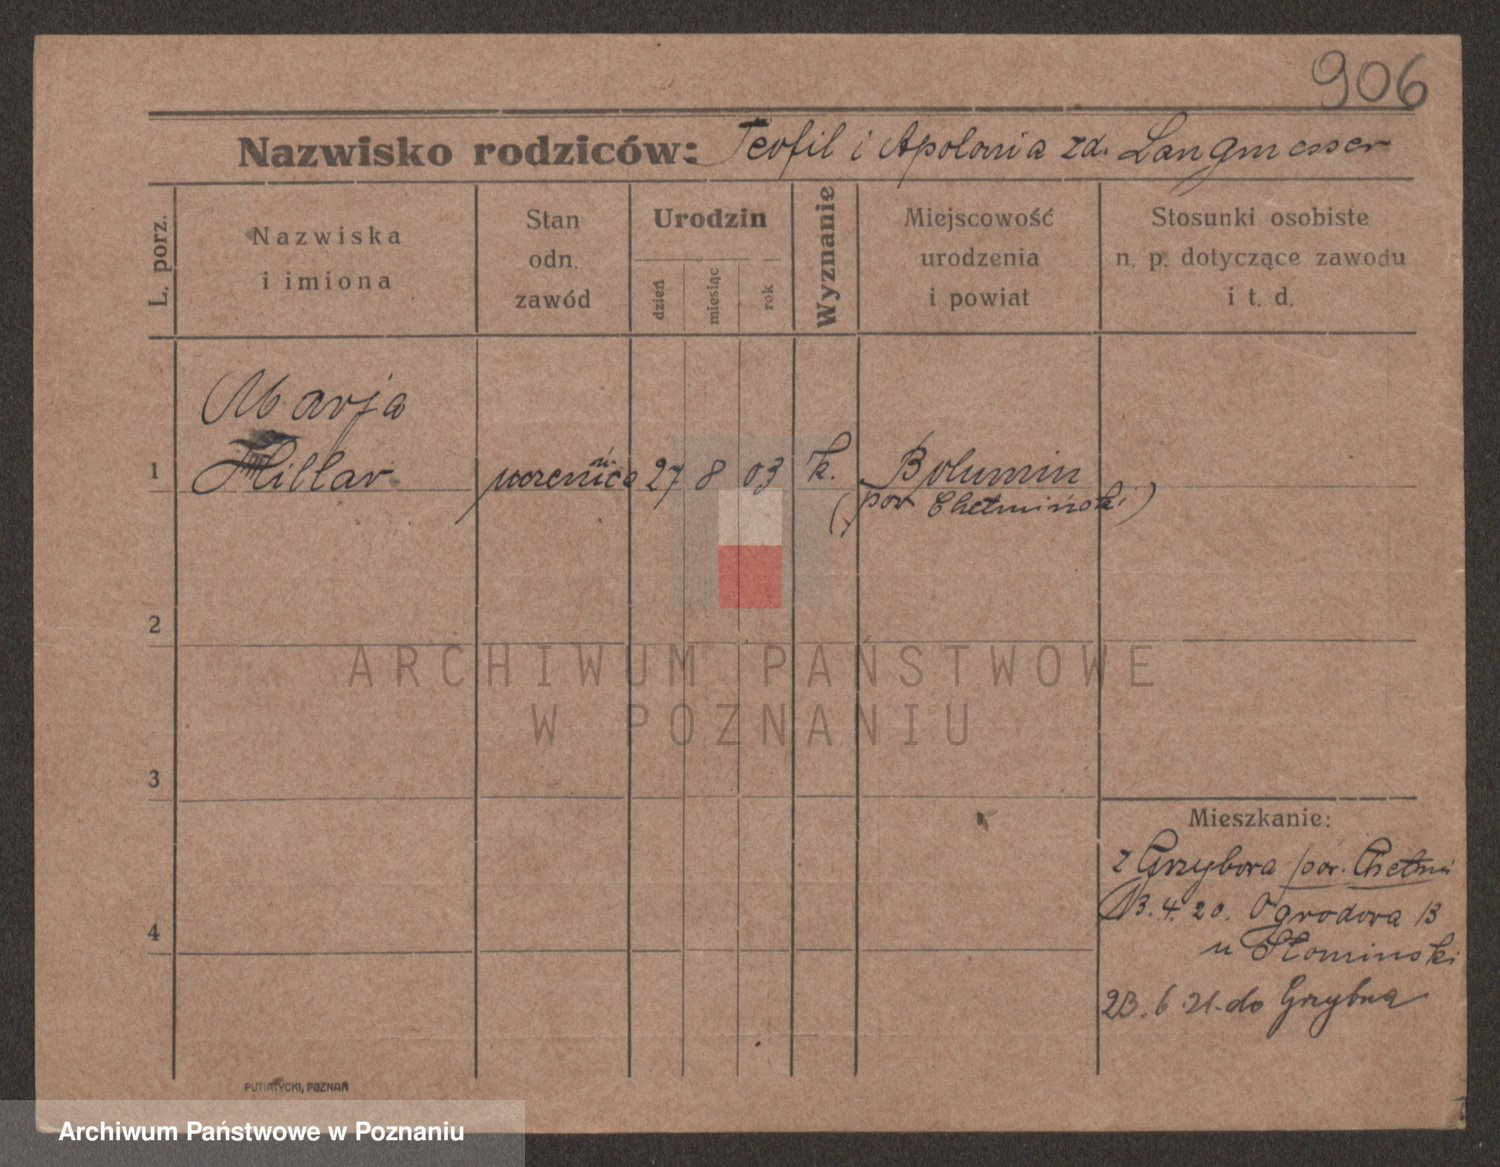 906
Nazwisko rodziców: Teofil i Apolonia zd. Langmesser
L. porz.
Nazwiska
i imiona
Stan
odn.
zawód
Urodzin
dzień
miesiąc
rok
Wyznanie
Miejscowość
urodzenia
i powiat
Stosunki osobiste
n. p. dotyczące zawodu
i t. d.
Marja
1 Hillar uczenica 27 8 03 k. Bolumin
(pow Chełmiński)
2
ARCHIWUM PAŃSTWOWE
W POZNANIU
3
Mieszkanie:
z Grzybora pow. Chełmi
4 13.4.20. Ogrodowa 13
u Słominski
23.6.21. do Grzybna
PUTIATYCKI, POZNAŃ
Archiwum Państwowe w Poznaniu